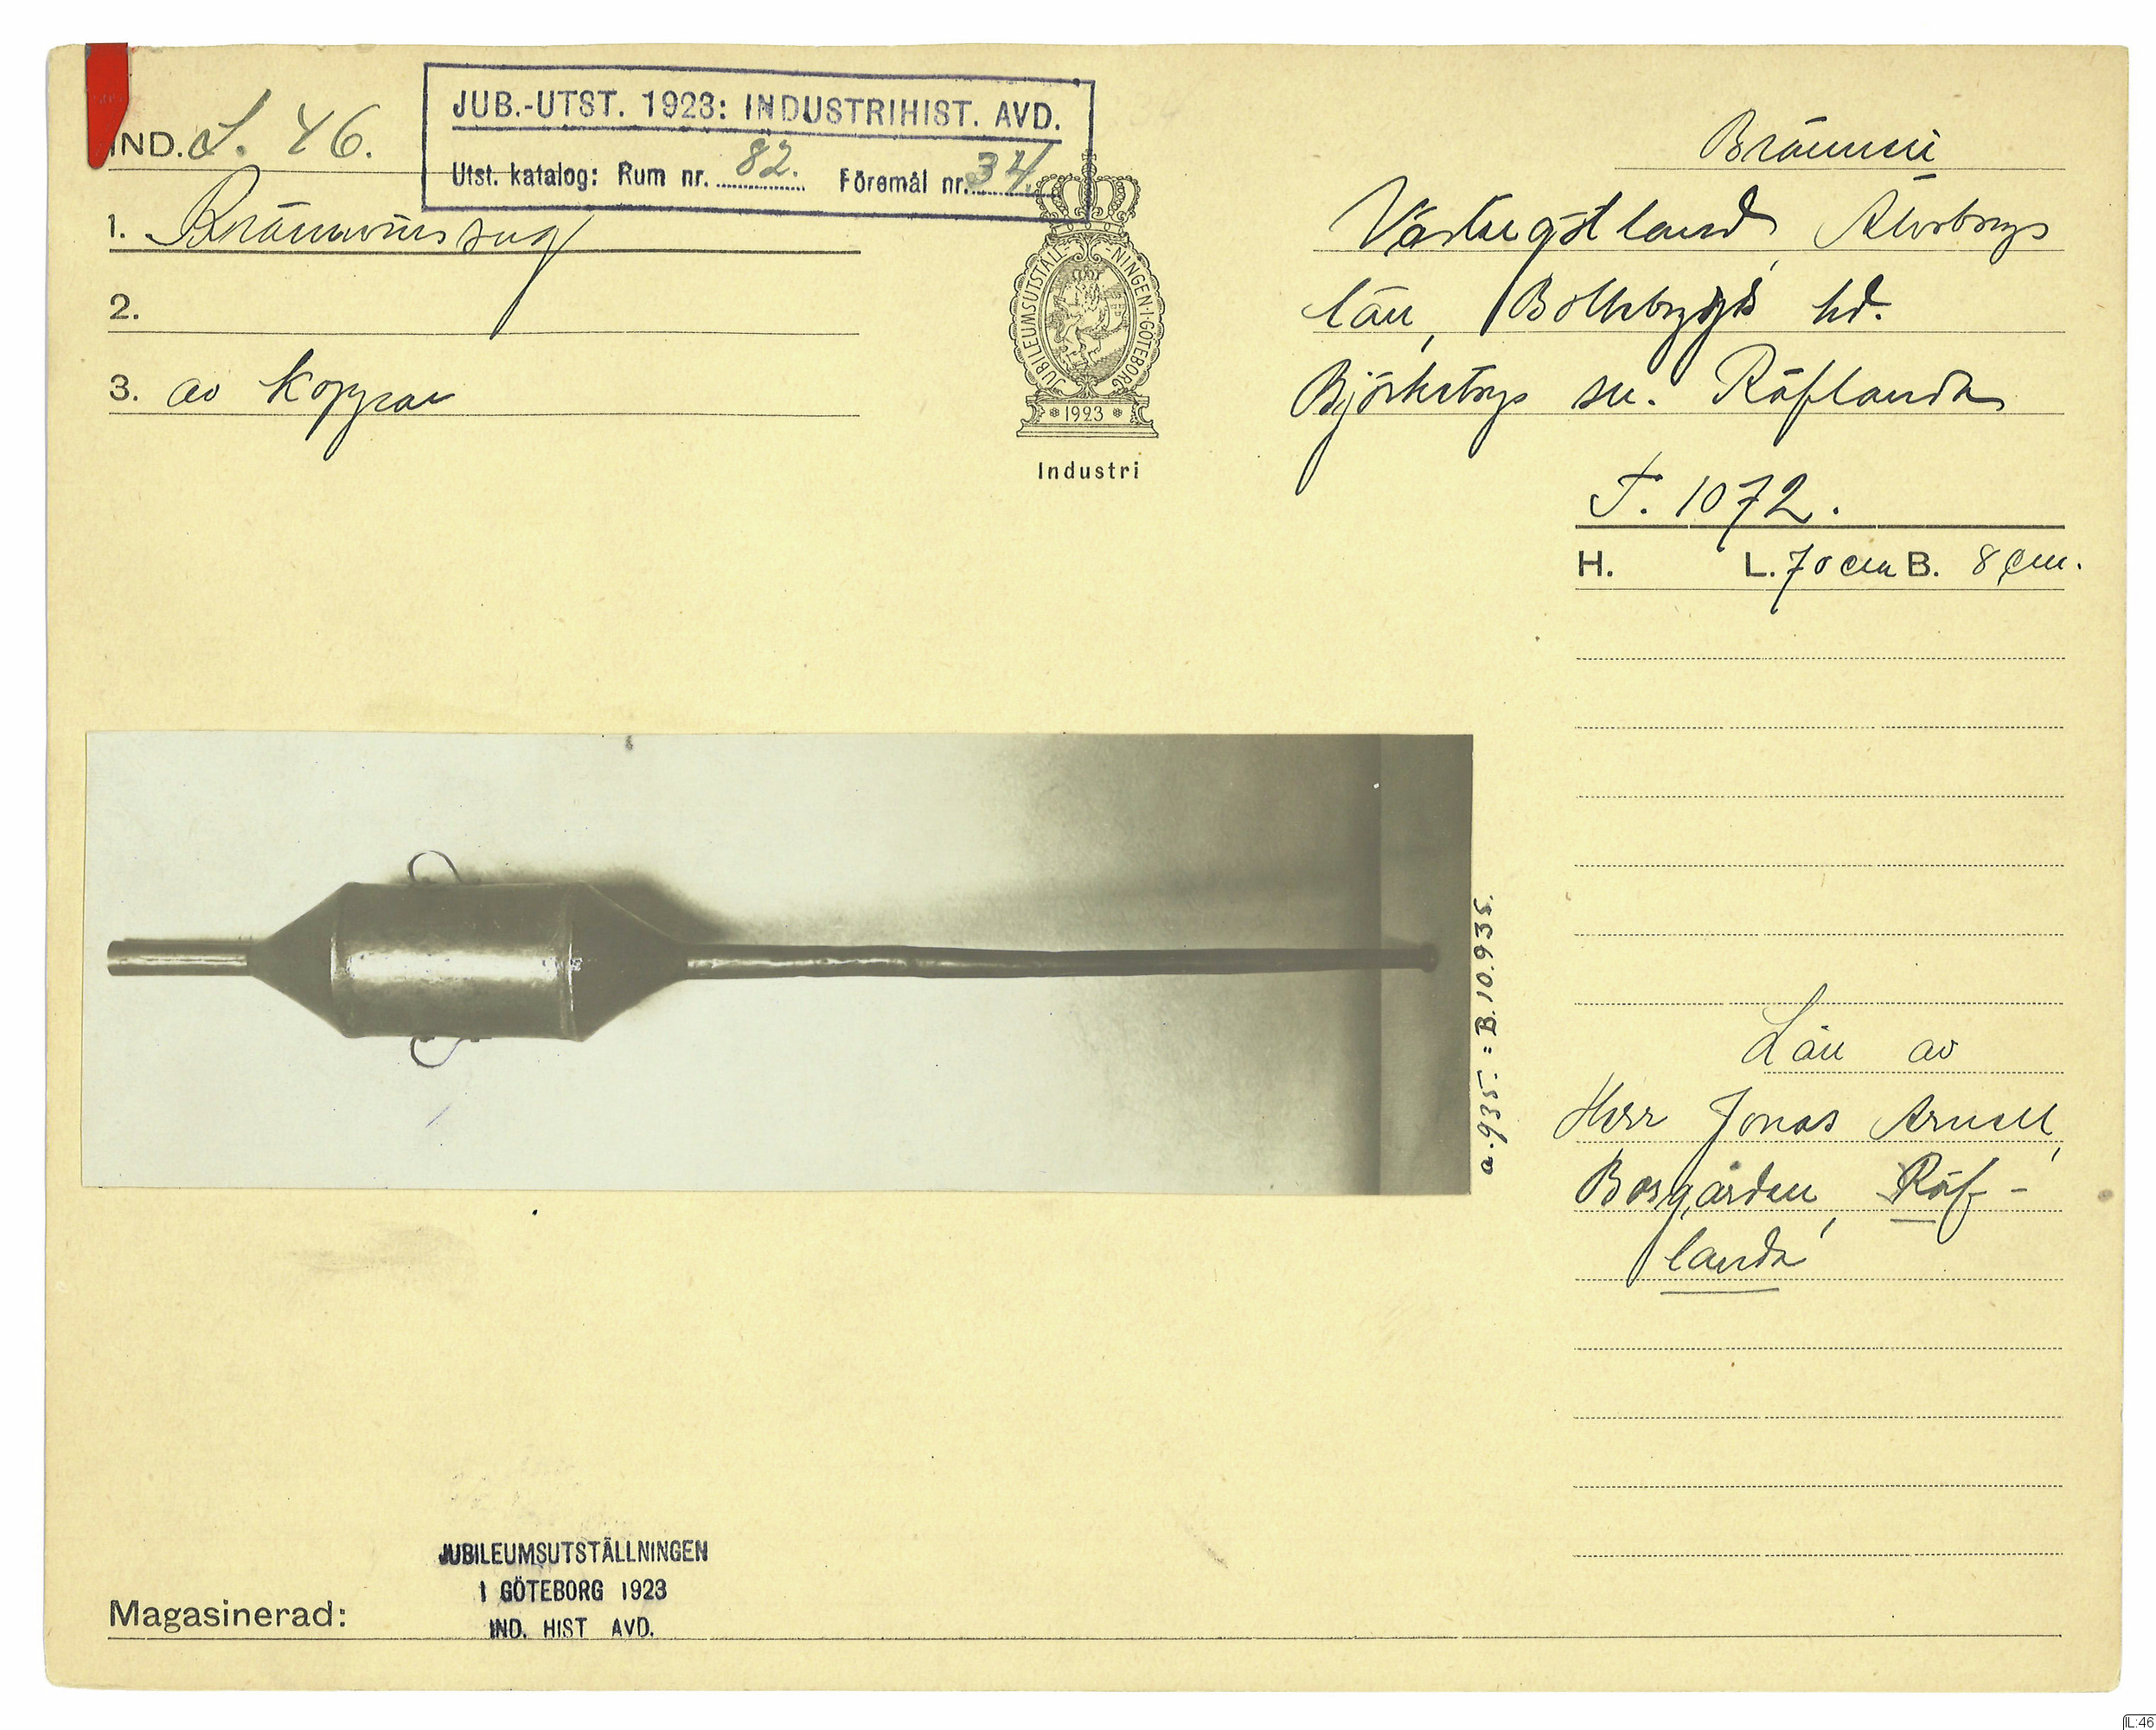 JUB.-UTST. 1923: INDUSTRIHIST. AVD.
Utst. katalog: Rum nr. 82. Föremål nr. 34.
IND. L. 46.
1. Brännvinssug
2.
3. av koppar
JUBILEUMSUTSTÄLLNINGEN·I·GÖTEBORG
* 1923 *
Industri
Brännvin
Västergötland, Älvsborgs
län, Bollebygds hd.
Björketorps sn. Räflanda
F. 1072.
H. L. 70 cm B. 8 cm.
a.935. = B.10.935.
Lån av
Herr Jonas Arnell,
Borgården, Räf-
landa
Magasinerad:
JUBILEUMSUTSTÄLLNINGEN
I GÖTEBORG 1923
IND. HIST AVD.
IL:46